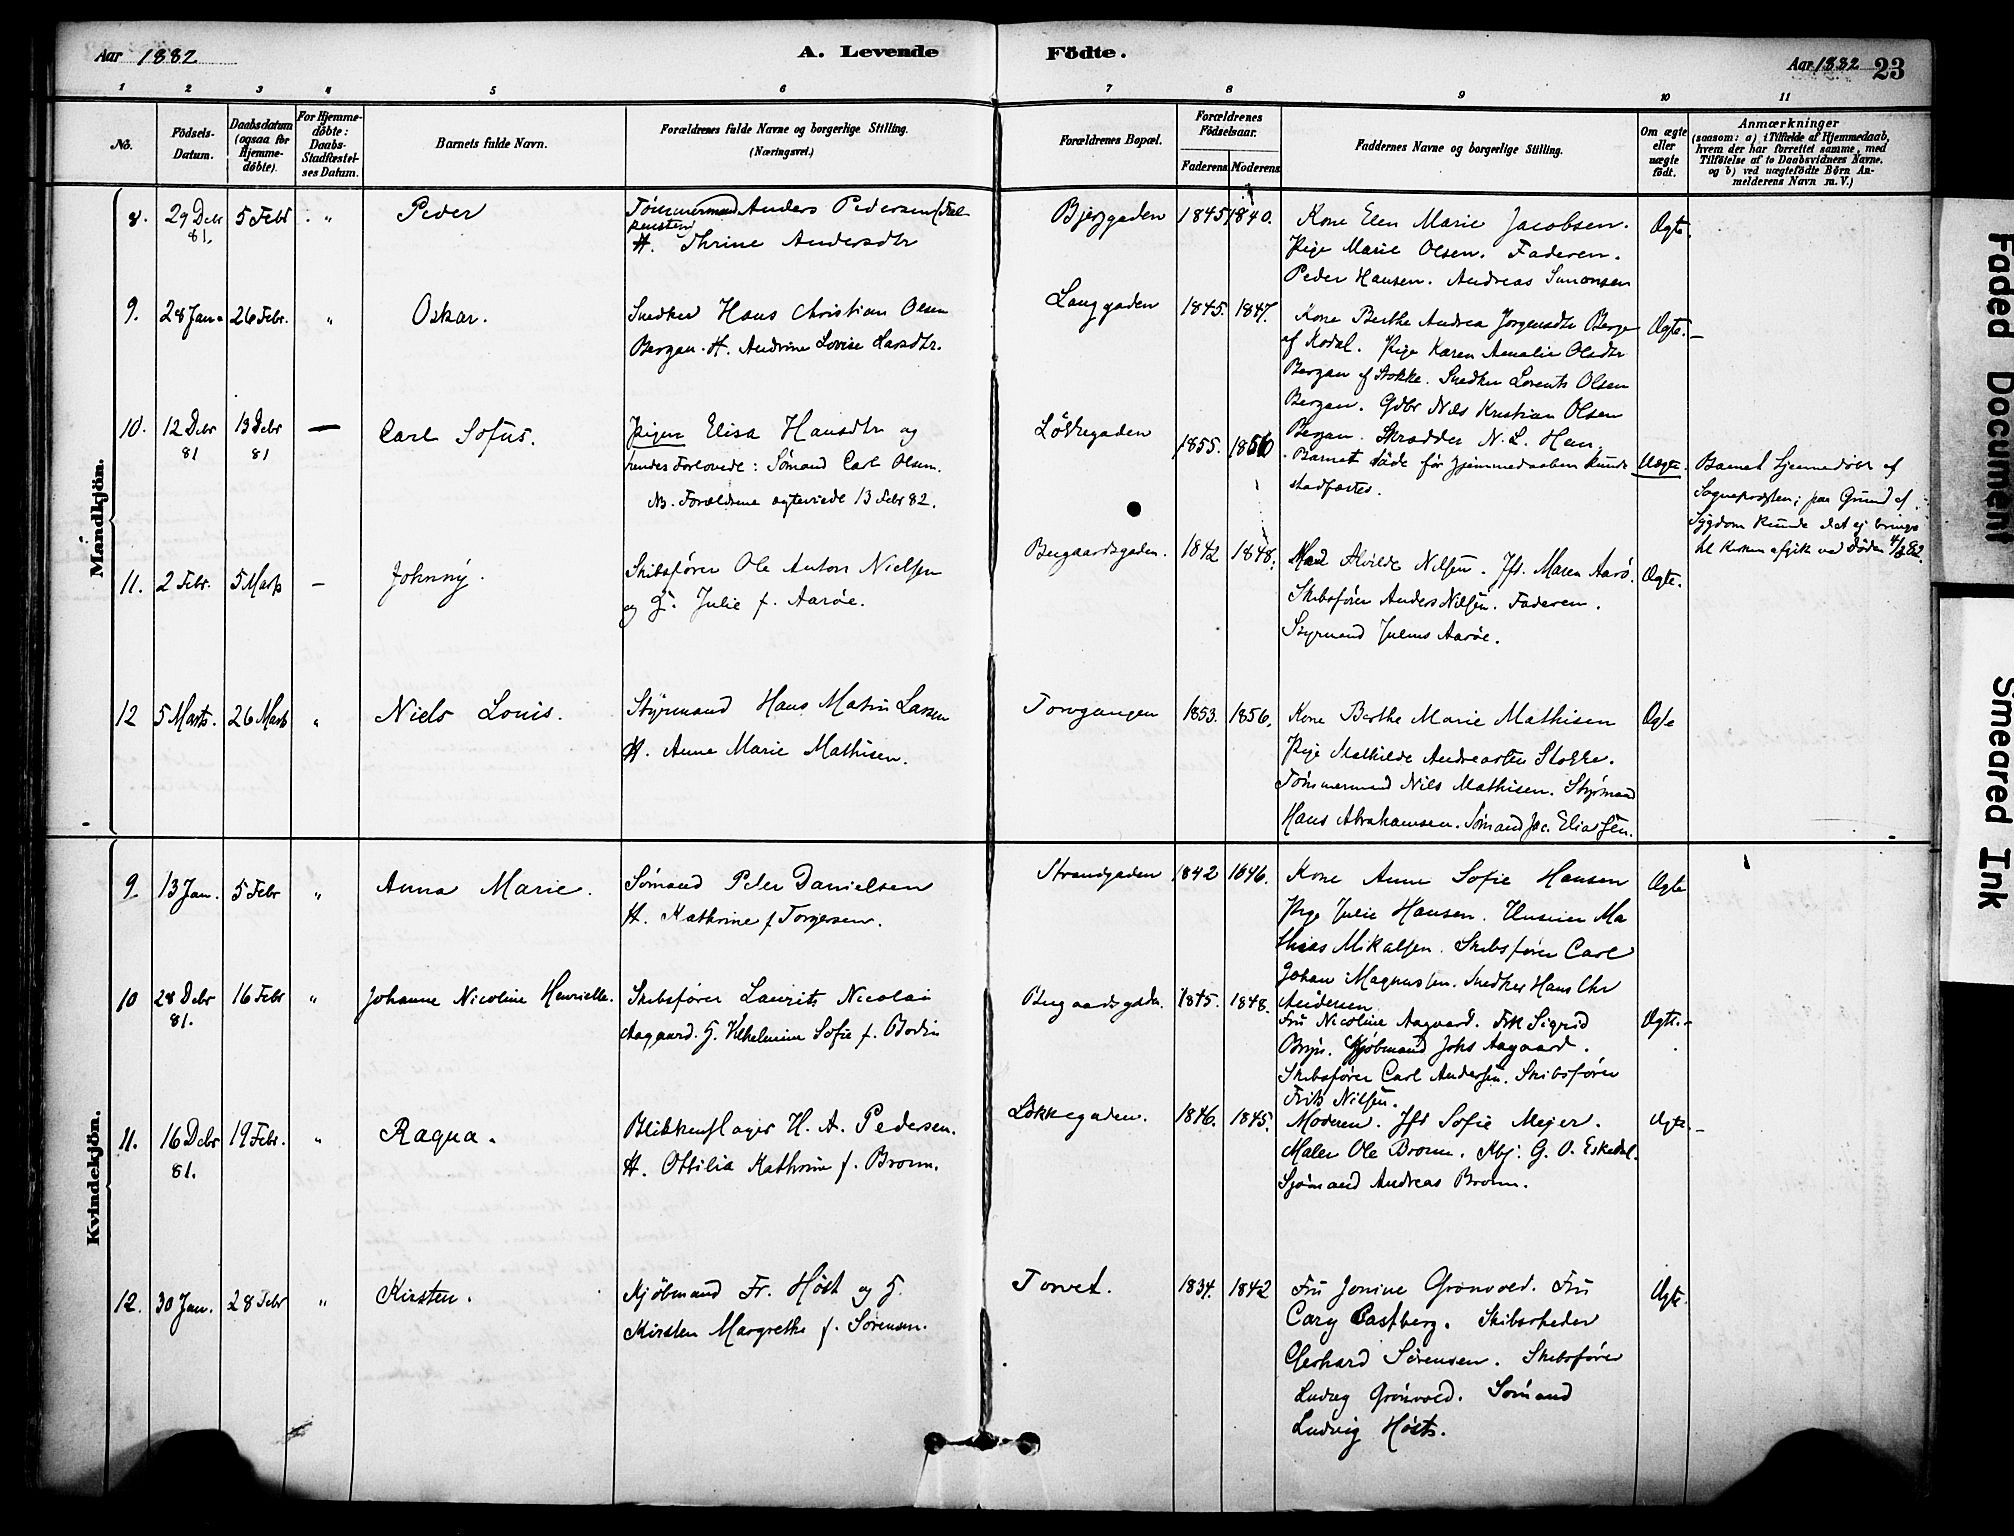 Aar 1882
A. Levende
Födte.
Aar 1882
23
1 2 3 4 5 6 7 8 9 10 11
No.
Födsels-
Datum.
Daabsdatum
(ogsaa for
Hjemme-
döbte).
For Hjemme-
döbte:
Daabs-
Stadfæstel-
ses Datum.
Barnets fulde Navn.
Forældrenes fulde Navne og borgerlige Stilling.
(Næringsvei.)
Forældrenes Bopæl.
Forældrenes
Födselsaar.
Faderens Moderens
Faddernes Navne og borgerlige Stilling.
Om ægte
eller
uægte
födt.
Anmærkninger
(saasom: a) i Tilfælde af Hjemmedaab,
hvem der har forrettet samme, med
Tilföielse af to Daabsvidners Navne.
og b) ved uægtefödte Börn An-
melderens Navn m. V.)
Mandkjön.
8. 29 Debr 81. 5 Febr "
Peder
Tømmermand Anders Pedersen
H. Thrine Andersdtr
Bjerggaden
1845 1840.
Kone Elen Marie Jacobsen.
Pige Marie Olsen. Faderen.
Peder Hansen. Andreas Simonsen
Ægte.
9. 28 Jan. 26 Febr. "
Oskar.
Snedker Hans Christian Olsen
Bergan. H. Andrine Lovise Larsdtr.
Langgaden
1845. 1847.
Kone Berthe Andrea Jørgensdtr Berge
af Kodal. Pige Karen Amalie Olsdtr
Bergan af Stokke. Snedker Lorents Olsen
Bergan. Gdbr Nils Kristian Olsen
Bergan. Skrædder N. L. Hen.
Ægte.
10. 12 Debr 81 13 Debr 81 —
Carl Sofus.
Pigen Elisa Hansdtr og
hendes Forlovede: Sømand Carl Olsen.
NB. Forældrene ægteviede 13 Febr 82.
Løkkegaden
1855. 1856
Barnet døde før Hjemmedaaben kunde
stadfæstes.
Uægte.
Barnet hjemmedøbt af
Sogneprøsten; paa Grund af
Sygdom kunde det ej bringes
til Kirken afgik ved Døden 4/3 82.
11. 2 Febr. 5 Marts —
Johnny.
Skibsfører Ole Anton Nielsen
og G. Julie f. Aarøe.
Bugaardsgaden.
1842 1848.
Mad Alvilde Nilsen. Jfr. Maren Aarø.
Skibsfører Anders Nilsen. Faderen.
Styrmand Julius Aarøe.
Ægte.
12 5 Marts. 26 Marts "
Niels Louis.
Styrmand Hans Matin Larsen
H. Anne Marie Mathisen.
Torvgangen
1853. 1856.
Kone Berthe Marie Mathisen
Pige Mathilde Andreasen Stokke.
Tømmermand Nils Mathisen. Styrmand
Hans Abrahamsen. Sømand Jac. Eliassen.
Ægte
Kvindekjön.
9 13 Jan. 5 Febr "
Anna Marie.
Sømand Peter Danielsen
H. Kathrine f. Torgersen.
Strandgaden
1842 1846.
Kone Anne Sofie Hansen
Pige Julie Hansen. Huseier Ma
thias Mikalsen. Skibsfører Carl
Johan Magnussen. Snedker Hans Chr
Andersen
Ægte
10 28 Debr 81. 16 Febr "
Johanne Nicoline Henriette.
Skibsfører Laurits Nicolai
Aagaard. G. Vilhelmine Sofie f. Bodin
Bugaardsgaden.
1845. 1848.
Fru Nicoline Aagaard. Frk Sigrid
Bryn. Kjøbmand Johs Aagaard.
Skibsfører Carl Andersen. Skibsfører
Frits Nilsen.
Ægte.
11. 16 Debr 81. 19 Febr. "
Ragna.
Blikkenslager H. A. Pedersen.
H. Ottilia Kathrine f. Brown.
Løkkegaden.
1846. 1845.
Moderen. Jfr Sofie Mejer.
Maler Ole Brown. Kbj. G. O. Eskedal.
Sjømand Andreas Brown.
Ægte.
12. 30 Jan. 28 Febr "
Kirsten.
Kjøbmand Fr. Høst og G.
Kirsten Margrethe f. Sørensen.
Torvet.
1834. 1842
Fru Jonine Grønvold. Fru
Cary Castberg. Skibsrheder
Gerhard Sørensen. Skibsfører
Ludvig Grønvold. Sømand
Ludvig Høst.
Ægte.
Faded Document
Smeared Ink